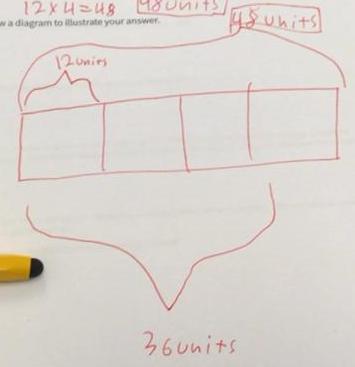 12 x 4 = 48 48 units
w a diagram to illustrate your answer.
48 units
12 units
36 units